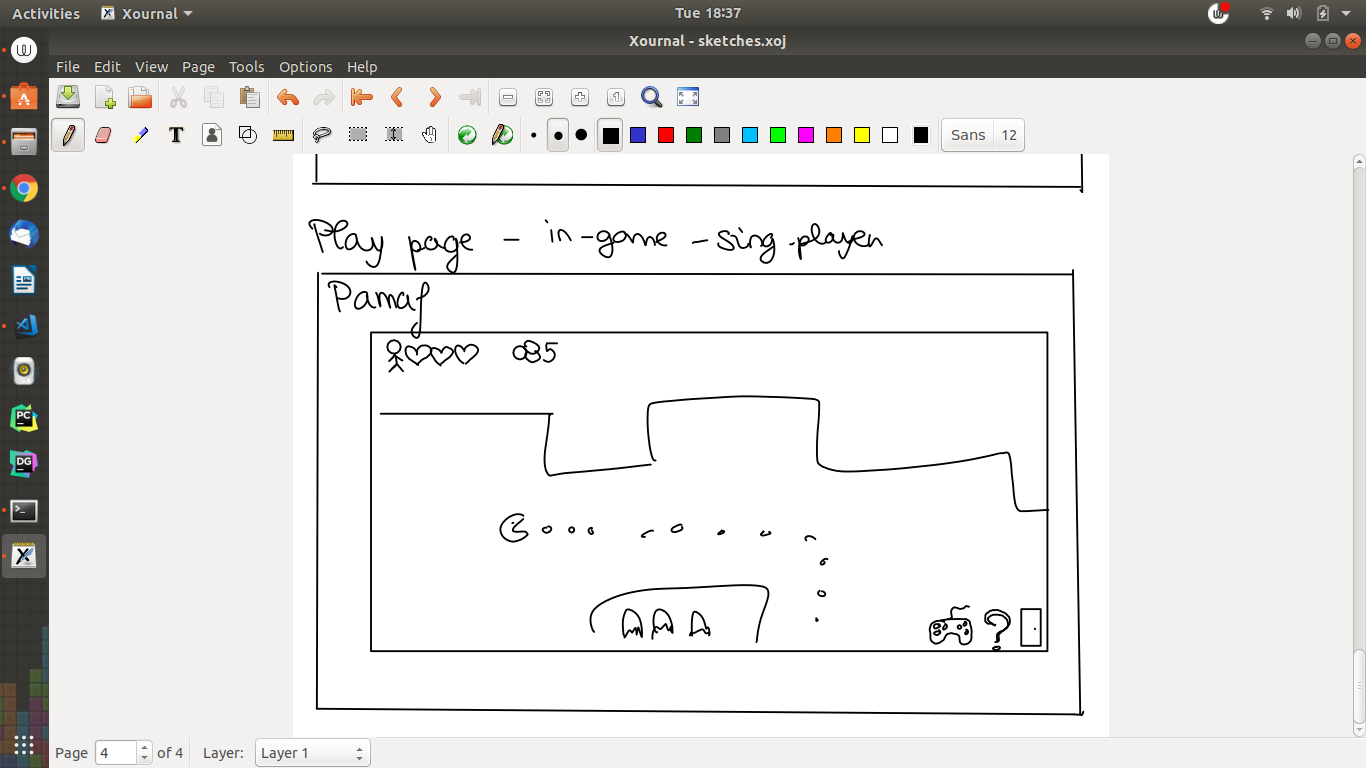 Activities Xournal Tue 18:37
Xournal - sketches.xoj
File Edit View Page Tools Options Help
T Sans 12
Play page - in-game - sing.player
Pamaf
5
Page 4 of 4 Layer: Layer 1